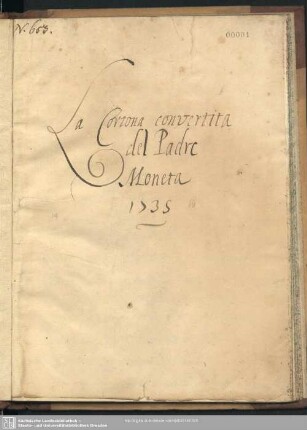 N. 663.
00001
La Corona convertita
del Padre
Moneta
1735
Sächsische Landesbibliothek -
Staats- und Universitätsbibliothek Dresden